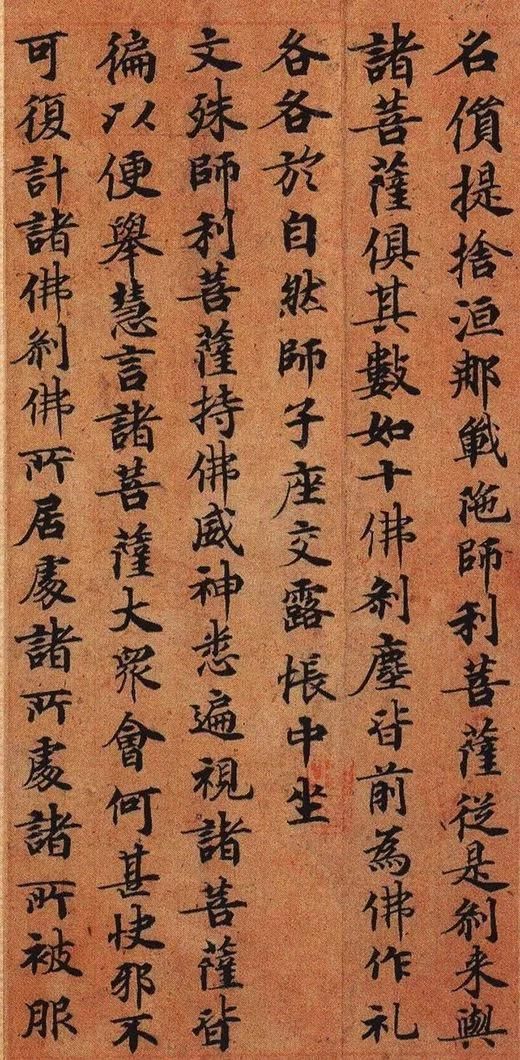 名儨提捨洹那戰陁師利菩薩從是刹来與
諸菩薩俱其數如十佛刹塵皆前為佛作礼
各各於自然師子座交露帳中坐
文殊師利菩薩持佛威神悉遍視諸菩薩皆
徧以便舉慧言諸菩薩大衆會何甚快邪不
可復計諸佛刹佛所居處諸所處諸所被服